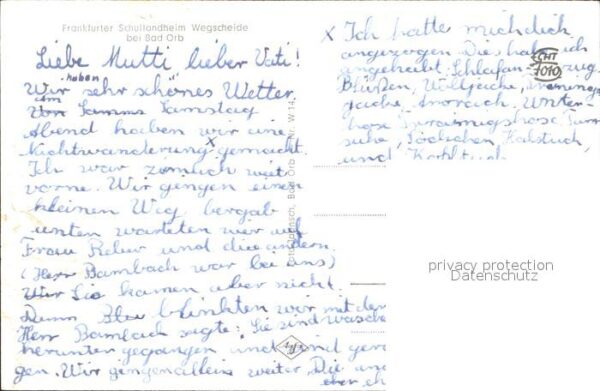 Frankfurter Schullandheim Wegscheide
bei Bad Orb
Liebe Mutti lieber Vati!
Wir haben sehr schönes Wetter
am Samstag
Abend haben wir eine
Nichtwanderung x gemacht.
Ich war zimlich weit
vorne. Wir gingen einen
kleinen Weg bergab
unten warteten wir auf
Frau Reber und die andern.
(Herr Bambach war bei uns)
Sie kamen aber nicht.
Dann blinkten wir mit der
Herr Bambach sagte: Sie sind
herunter gegangen und
gen. Wir gingen alleine weiter. Die
aber
x Ich hatte mich dick
angezogen. Dies habe ich
angehabt: Schlafanzug
Blusen, Volljacke,
jacke, Anorack, Unter-
hose, Trainingshose, Turn
suhe, Söckchen Halstuch,
und Kopftuch
CHT
7010
Bad Orb
W 14
privacy protection
Datenschutz
Agfa